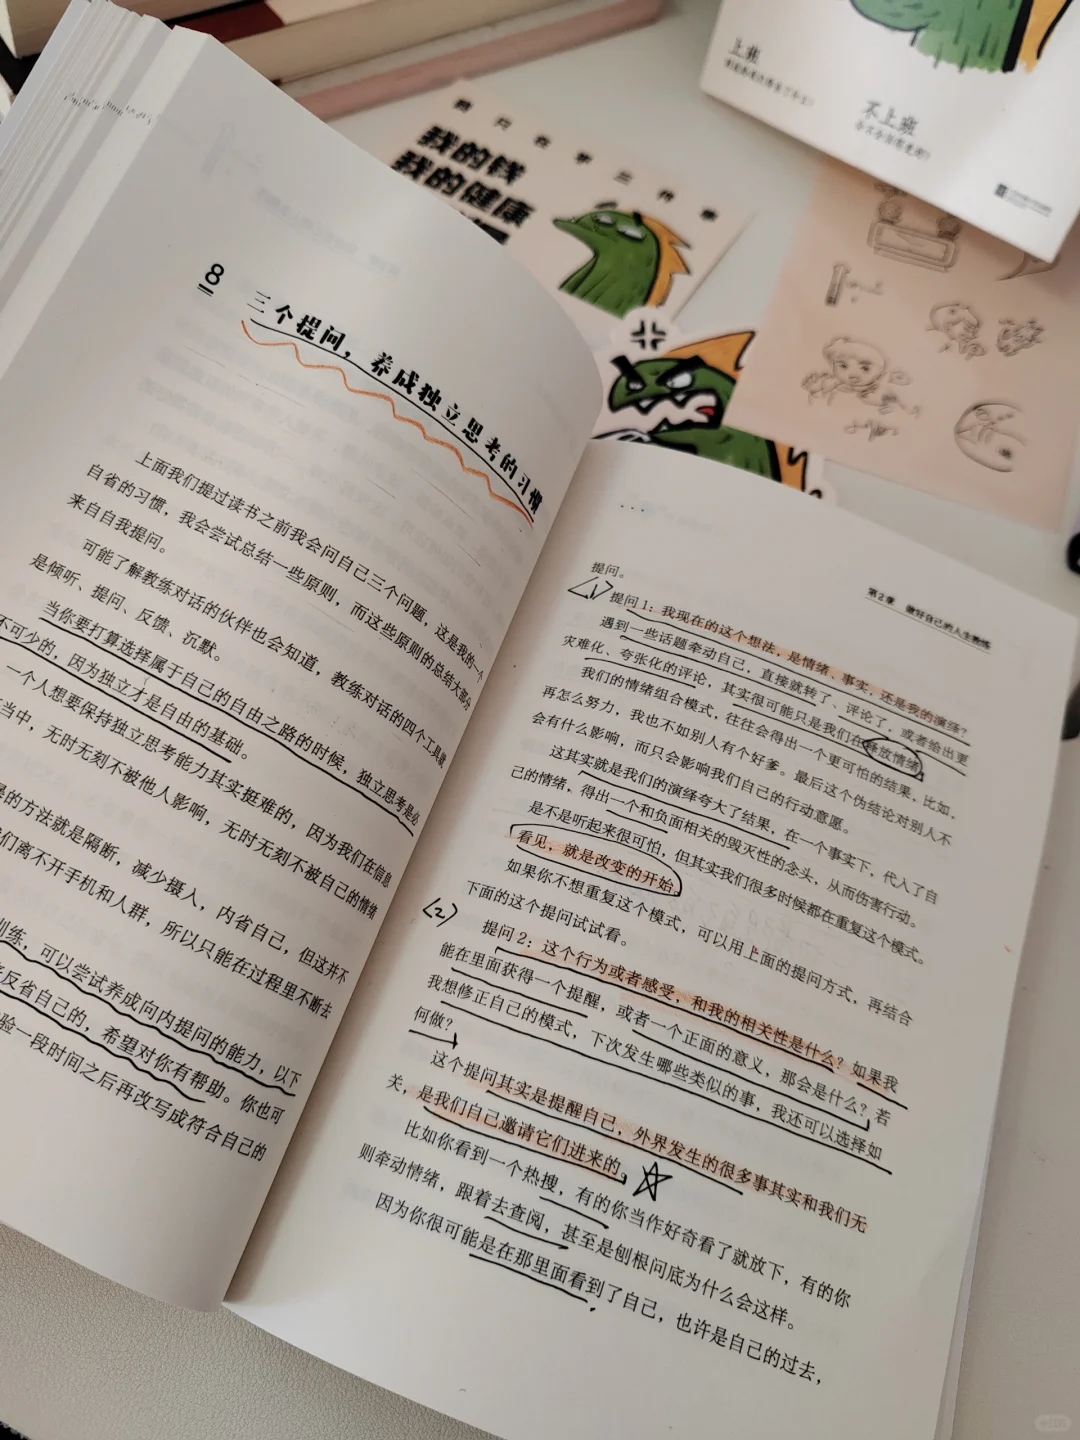 上班
不上班
我只在乎三件事
我的钱
我的健康
8
三个提问，养成独立思考的习惯
上面我们提过读书之前我会问自己三个问题，这是我的一个
自省的习惯，我会尝试总结一些原则，而这些原则的总结大部分
来自自我提问。
可能了解教练对话的伙伴也会知道，教练对话的四个工具就
是倾听、提问、反馈、沉默。
当你要打算选择属于自己的自由之路的时候，独立思考是必
不可少的，因为独立才是自由的基础。
一个人想要保持独立思考能力其实挺难的，因为我们在信息
当中，无时无刻不被他人影响，无时无刻不被自己的情绪
的方法就是隔断，减少摄入，内省自己，但这并不
们离不开手机和人群，所以只能在过程里不断去
训练，可以尝试养成向内提问的能力，以下
反省自己的，希望对你有帮助。你也可
验一段时间之后再改写成符合自己的
第2章 做好自己的人生教练
提问。
<1>
提问1：我现在的这个想法，是情绪、事实，还是我的演绎？
遇到一些话题牵动自己，直接就转了、评论了，或者给出更
灾难化、夸张化的评论，其实很可能只是我们在释放情绪。
我们的情绪组合模式，往往会得出一个更可怕的结果，比如，
再怎么努力，我也不如别人有个好爹。最后这个伪结论对别人不
会有什么影响，而只会影响我们自己的行动意愿。
这其实就是我们的演绎夸大了结果，在一个事实下，代入了自
己的情绪，得出一个和负面相关的毁灭性的念头，从而伤害行动。
是不是听起来很可怕，但其实我们很多时候都在重复这个模式。
看见，就是改变的开始。
如果你不想重复这个模式，可以用上面的提问方式，再结合
下面的这个提问试试看。
<2>
提问2：这个行为或者感受，和我的相关性是什么？如果我
能在里面获得一个提醒，或者一个正面的意义，那会是什么？若
我想修正自己的模式，下次发生哪些类似的事，我还可以选择如
何做？
这个提问其实是提醒自己，外界发生的很多事其实和我们无
关，是我们自己邀请它们进来的。
比如你看到一个热搜，有的你当作好奇看了就放下，有的你
则牵动情绪，跟着去查阅，甚至是刨根问底为什么会这样。
因为你很可能是在那里面看到了自己，也许是自己的过去，